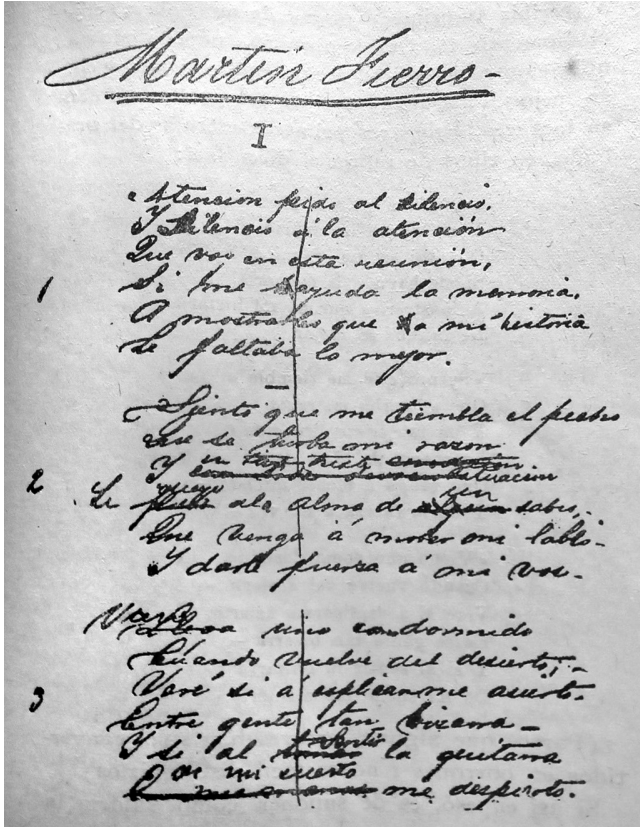 Martin Fierro -
I
Atencion pido al silencio,
Y silencio á la atención
Que voy en esta reunión,
1 Si me ayuda la memoria,
A mostrarles que á mi historia
Le faltaba lo mejor.
Siento que me tiembla el pecho
Que se turba mi razon
Y en tan triste situacion
2 Le ruego al alma de un sabio,
Que venga á mover mi labio -
Y darle fuerza á mi voz -
Vare uno como dormido
Cuando vuelve del desierto; -
3 Veré si á esplicarme acierto -
Entre gente tan bizarra -
Y si al sentir la guitarra
De mi sueño me despierto.